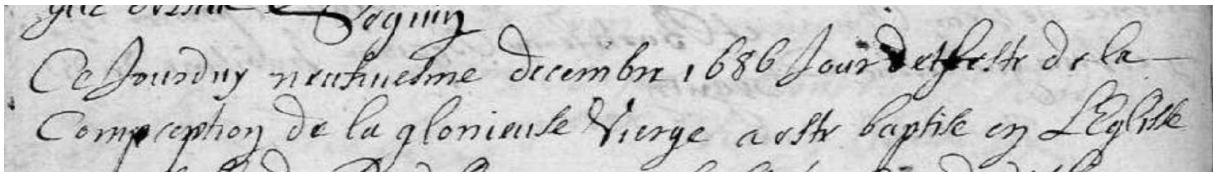 Seguin
Ce Jourduy neufuiesme decembre 1686 Jour de feste de la
Compception de la glorieuse Vierge a este baptise en LEglise